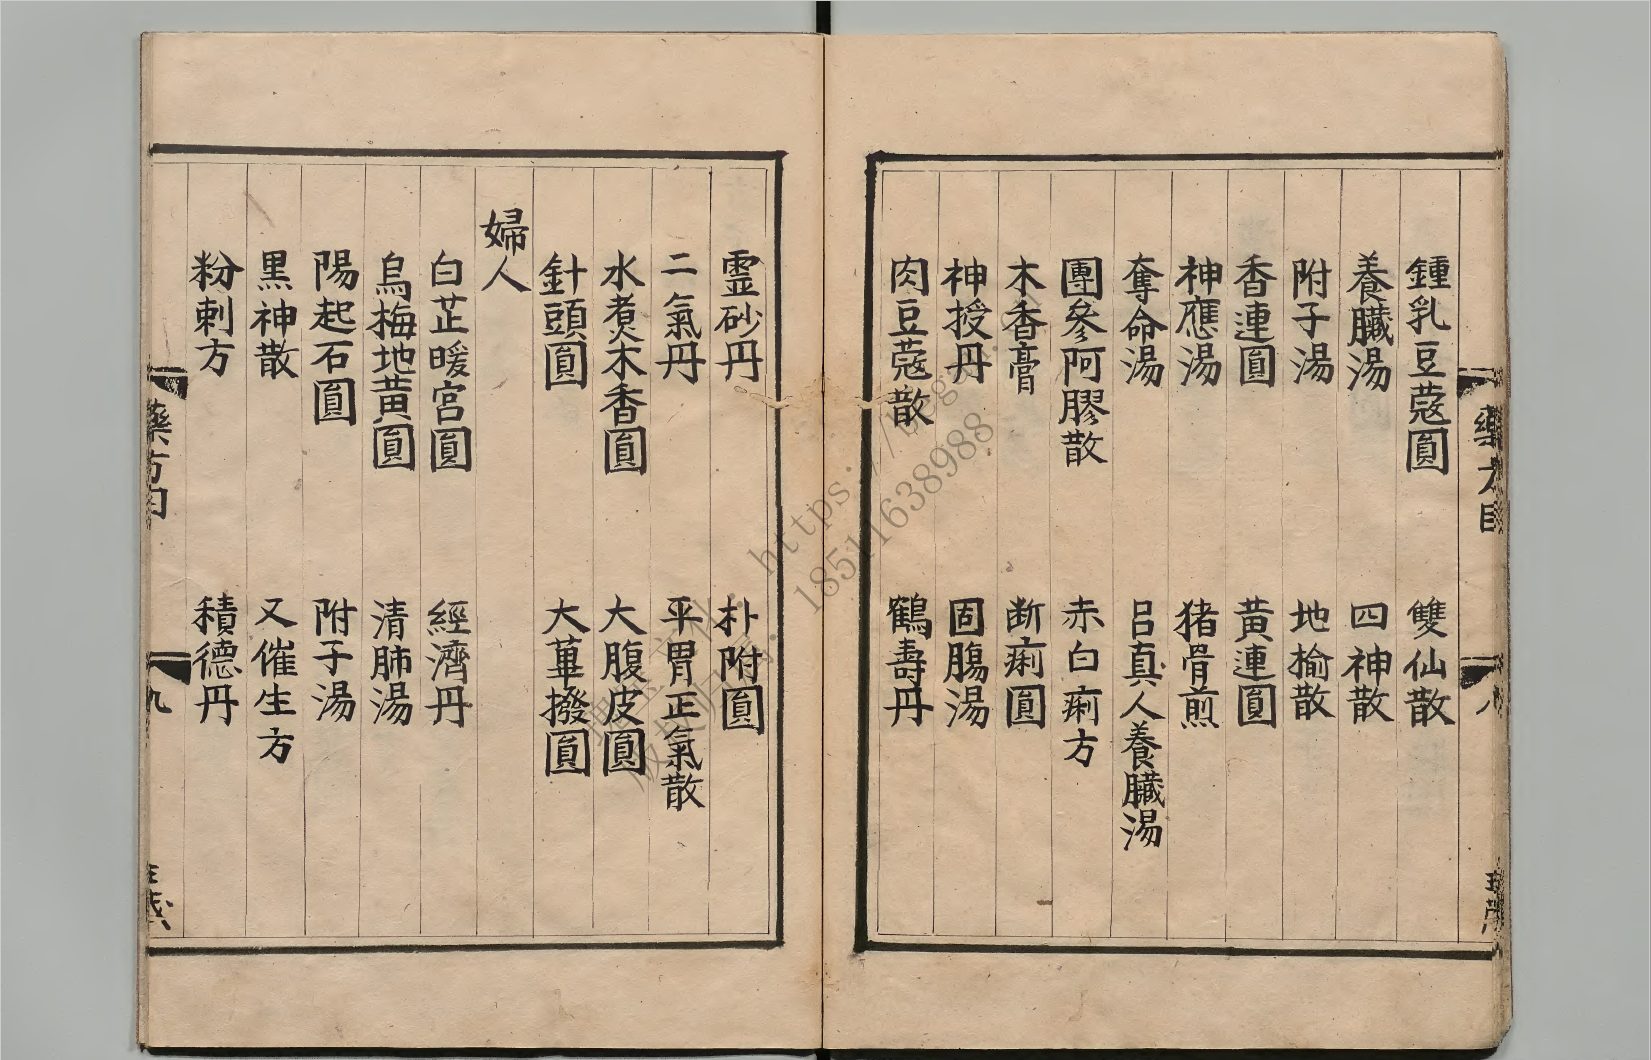 鍾乳豆蔻圓　雙仙散
養臟湯　四神散
附子湯　地榆散
香連圓　黃連圓
神應湯　猪骨煎
奪命湯　呂真人養臟湯
團參阿膠散　赤白痢方
木香膏　断痢圓
神授丹　固腸湯
肉豆蔻散　鶴壽丹
藥方目　八
靈砂丹　朴附圓
二氣丹　平胃正氣散
水煮木香圓　大腹皮圓
針頭圓　大蓽撥圓
婦人
白芷暖宮圓　經濟丹
烏梅地黃圓　清肺湯
陽起石圓　附子湯
黑神散　又催生方
粉刺方　積德丹
藥方目　九
18511638988